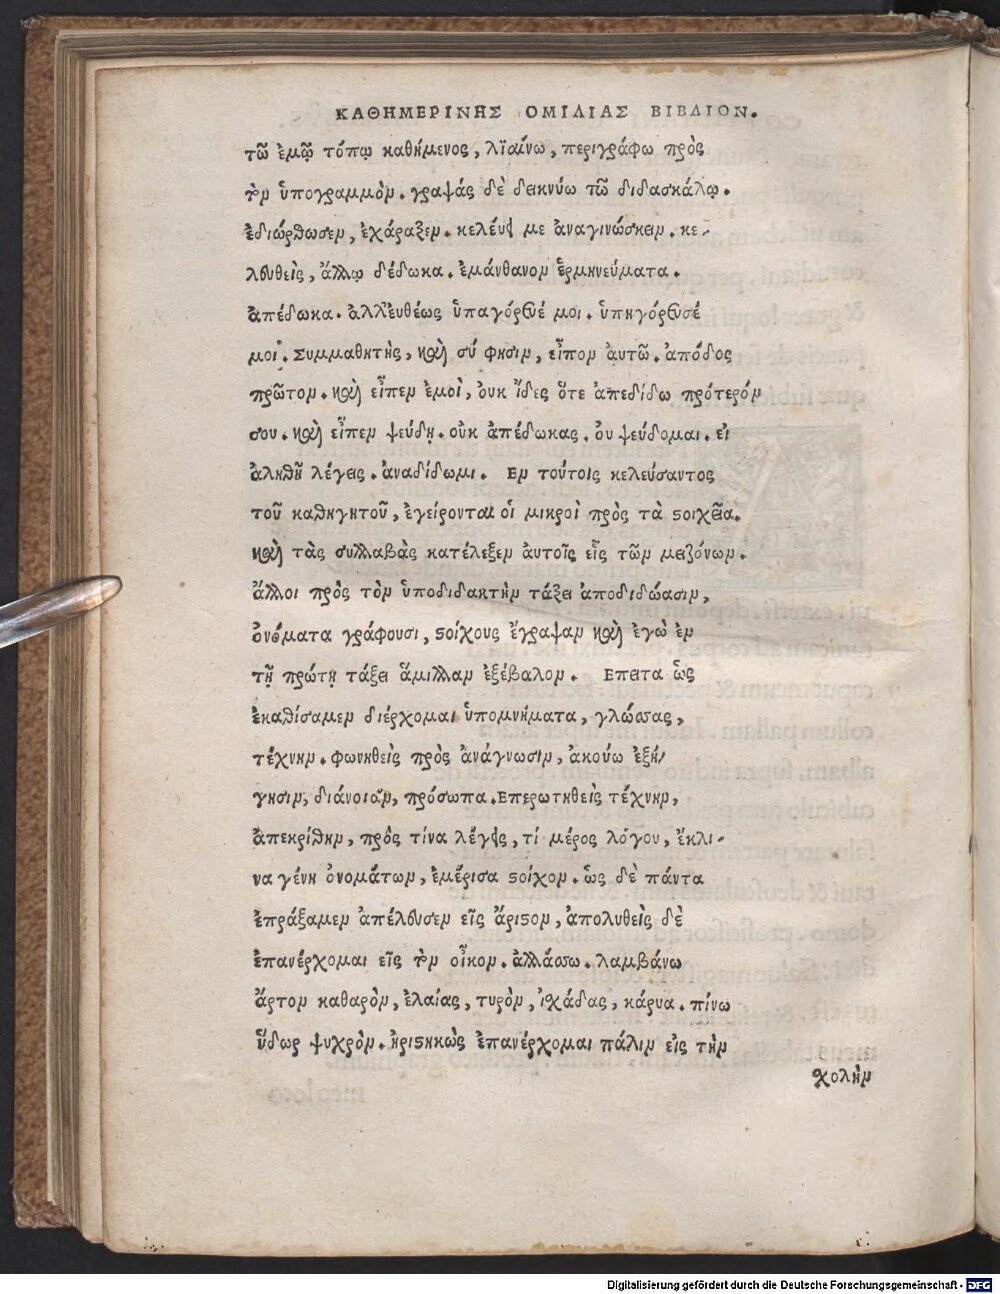 ΚΑΘΗΜΕΡΙΝΗΣ ΟΜΙΛΙΑΣ ΒΙΒΛΙΟΝ.
τῶ ἐμῶ τόπῳ καθήμενος, λϊαίνω, περιγράφω πρὸς
τὸν ὑπογραμμὸν. γραψάς δὲ δεικνύω τῶ διδασκάλῳ.
ἐδιώρθωσεν, ἐχάραξεν. κελέυει με ἀναγινώσκειν. κε-
λευθεὶς, ἄλλῳ δέδωκα. ἐμάνθανον ἑρμηνεύματα.
ἀπέδωκα. ἀλλ'ευθέως ὑπαγόρευέ μοι. ὑπηγόρευσέ
μοι. Συμμαθητὴς, καὶ σύ φησιν, εἶπον ἀυτῶ. ἀπόδος
πρῶτον. καὶ εἶπεν ἐμοὶ, ὀυκ ἴδες ὅτε ἀπεδίδω πρότερόν
σου. καὶ εἶπεν ψεύδῃ. οὐκ ἀπέδωκας. ὀυ ψεύδομαι. ἐι
ἀληθῆ λέγεις. ἀναδίδωμι. Εν τούτοις κελεύσαντος
τοῦ καθηγητοῦ, ἐγείρονται οἱ μικροὶ πρὸς τὰ ϛοιχεῖα.
καὶ τὰς συλλαβὰς κατέλεξεν ἀυτοῖς εἷς τῶν μειζόνων.
ἄλλοι πρὸς τὸν ὑποδιδακτὴν τάξει ἀποδιδώασιν,
ὀνόματα γράφουσι, ϛοίχους ἔγραψαν καὶ ἐγὼ ἐν
τῇ πρώτῃ τάξει ἅμιλλαν ἐξέβαλον. Επειτα ὡς
ἐκαθίσαμεν διέρχομαι ὑπομνήματα, γλώσσας,
τέχνην. φωνηθεὶς πρὸς ἀνάγνωσιν, ἀκούω ἐξή-
γησιν, διάνοιαν, πρόσωπα. Επερωτηθεὶς τέχνην,
ἀπεκρίθην, πρὸς τίνα λέγεις, τί μέρος λόγου, ἔκλι-
να γένη ὀνομάτων, ἐμέρισα ϛοίχον. ὡς δὲ πάντα
ἐπράξαμεν ἀπέλυσεν εἰς ἄριϛον, ἀπολυθεὶς δὲ
ἐπανέρχομαι εἰς τὸν οἶκον. ἀλλάσσω. λαμβάνω
ἄρτον καθαρὸν, ἐλαίας, τυρὸν, ἰχάδας, κάρυα. πίνω
ὕδωρ ψυχρὸν. ἠριϛηκὼς ἐπανέρχομαι πάλιν εἰς τὴν
χολὴν
Digitalisierung gefördert durch die Deutsche Forschungsgemeinschaft - DFG